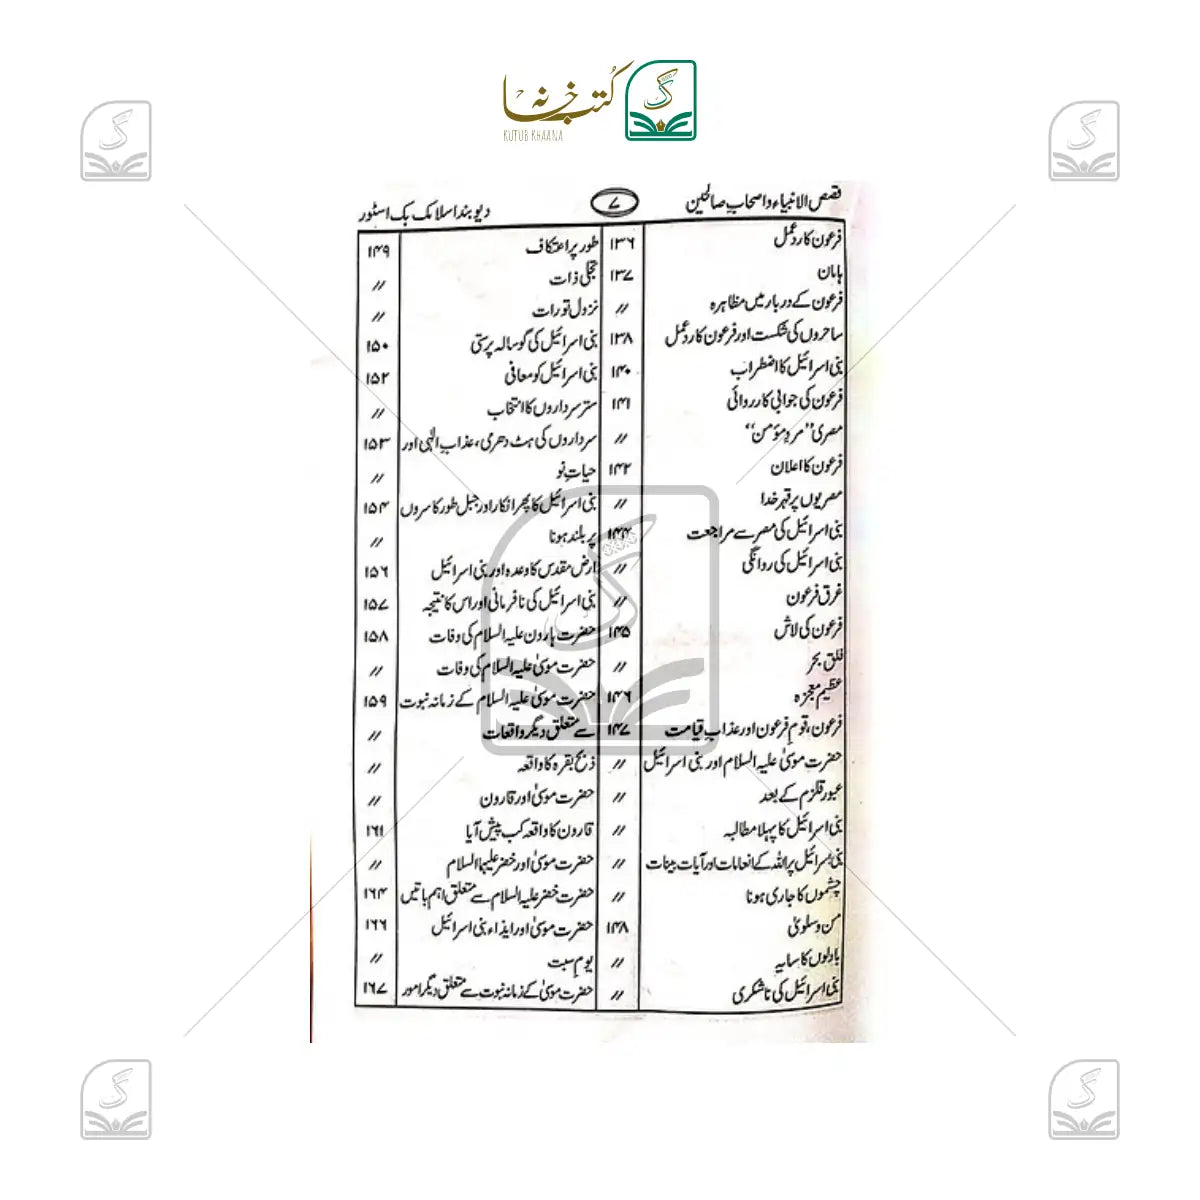 کتب خانہ
KUTUB KHAANA
قصص الانبیاء و اصحاب صالحین ۷ دیوبند اسلامک بک اسٹور
فرعون کا ردعمل ۱۳۶
ہامان ۱۳۷
فرعون کے دربار میں مظاہرہ //
ساحروں کی شکست اور فرعون کا ردعمل ۱۳۸
بنی اسرائیل کا اضطراب ۱۴۰
فرعون کی جوابی کارروائی ۱۴۱
مصری ”مردِ مؤمن“ //
فرعون کا اعلان ۱۴۲
مصریوں پر قہر خدا //
بنی اسرائیل کی مصر سے مراجعت ۱۴۴
بنی اسرائیل کی روانگی //
غرق فرعون //
فرعون کی لاش ۱۴۵
فلق بحر //
عظیم معجزہ ۱۴۶
فرعون، قوم فرعون اور عذاب قیامت ۱۴۷
حضرت موسیٰ علیہ السلام اور بنی اسرائیل //
عبور قلزم کے بعد //
بنی اسرائیل کا پہلا مطالبہ //
بنی اسرائیل پر اللہ کے انعامات اور آیات بینات //
چشموں کا جاری ہونا //
من وسلویٰ ۱۴۸
بادلوں کا سایہ //
بنی اسرائیل کی ناشکری //
طور پر اعتکاف ۱۴۹
تجلی ذات //
نزول تورات //
بنی اسرائیل کی گوسالہ پرستی ۱۵۰
بنی اسرائیل کو معافی ۱۵۲
ستر سرداروں کا انتخاب //
سرداروں کی ہٹ دھرمی، عذابِ الٰہی اور ۱۵۳
حیاتِ نو //
بنی اسرائیل کا پھر انکار اور جبل طور کا سروں ۱۵۴
پر بلند ہونا //
ارض مقدس کا وعدہ اور بنی اسرائیل ۱۵۶
بنی اسرائیل کی نافرمانی اور اس کا نتیجہ ۱۵۷
حضرت ہارون علیہ السلام کی وفات ۱۵۸
حضرت موسیٰ علیہ السلام کی وفات //
حضرت موسیٰ علیہ السلام کے زمانہ نبوت ۱۵۹
سے متعلق دیگر واقعات //
ذبح بقرہ کا واقعہ //
حضرت موسیٰ اور قارون //
قارون کا واقعہ کب پیش آیا ۱۶۱
حضرت موسیٰ اور خضر علیہما السلام //
حضرت خضر علیہ السلام سے متعلق اہم باتیں ۱۶۴
حضرت موسیٰ اور ایذاء بنی اسرائیل ۱۶۶
یوم سبت //
حضرت موسیٰ کے زمانہ نبوت سے متعلق دیگر امور ۱۶۷